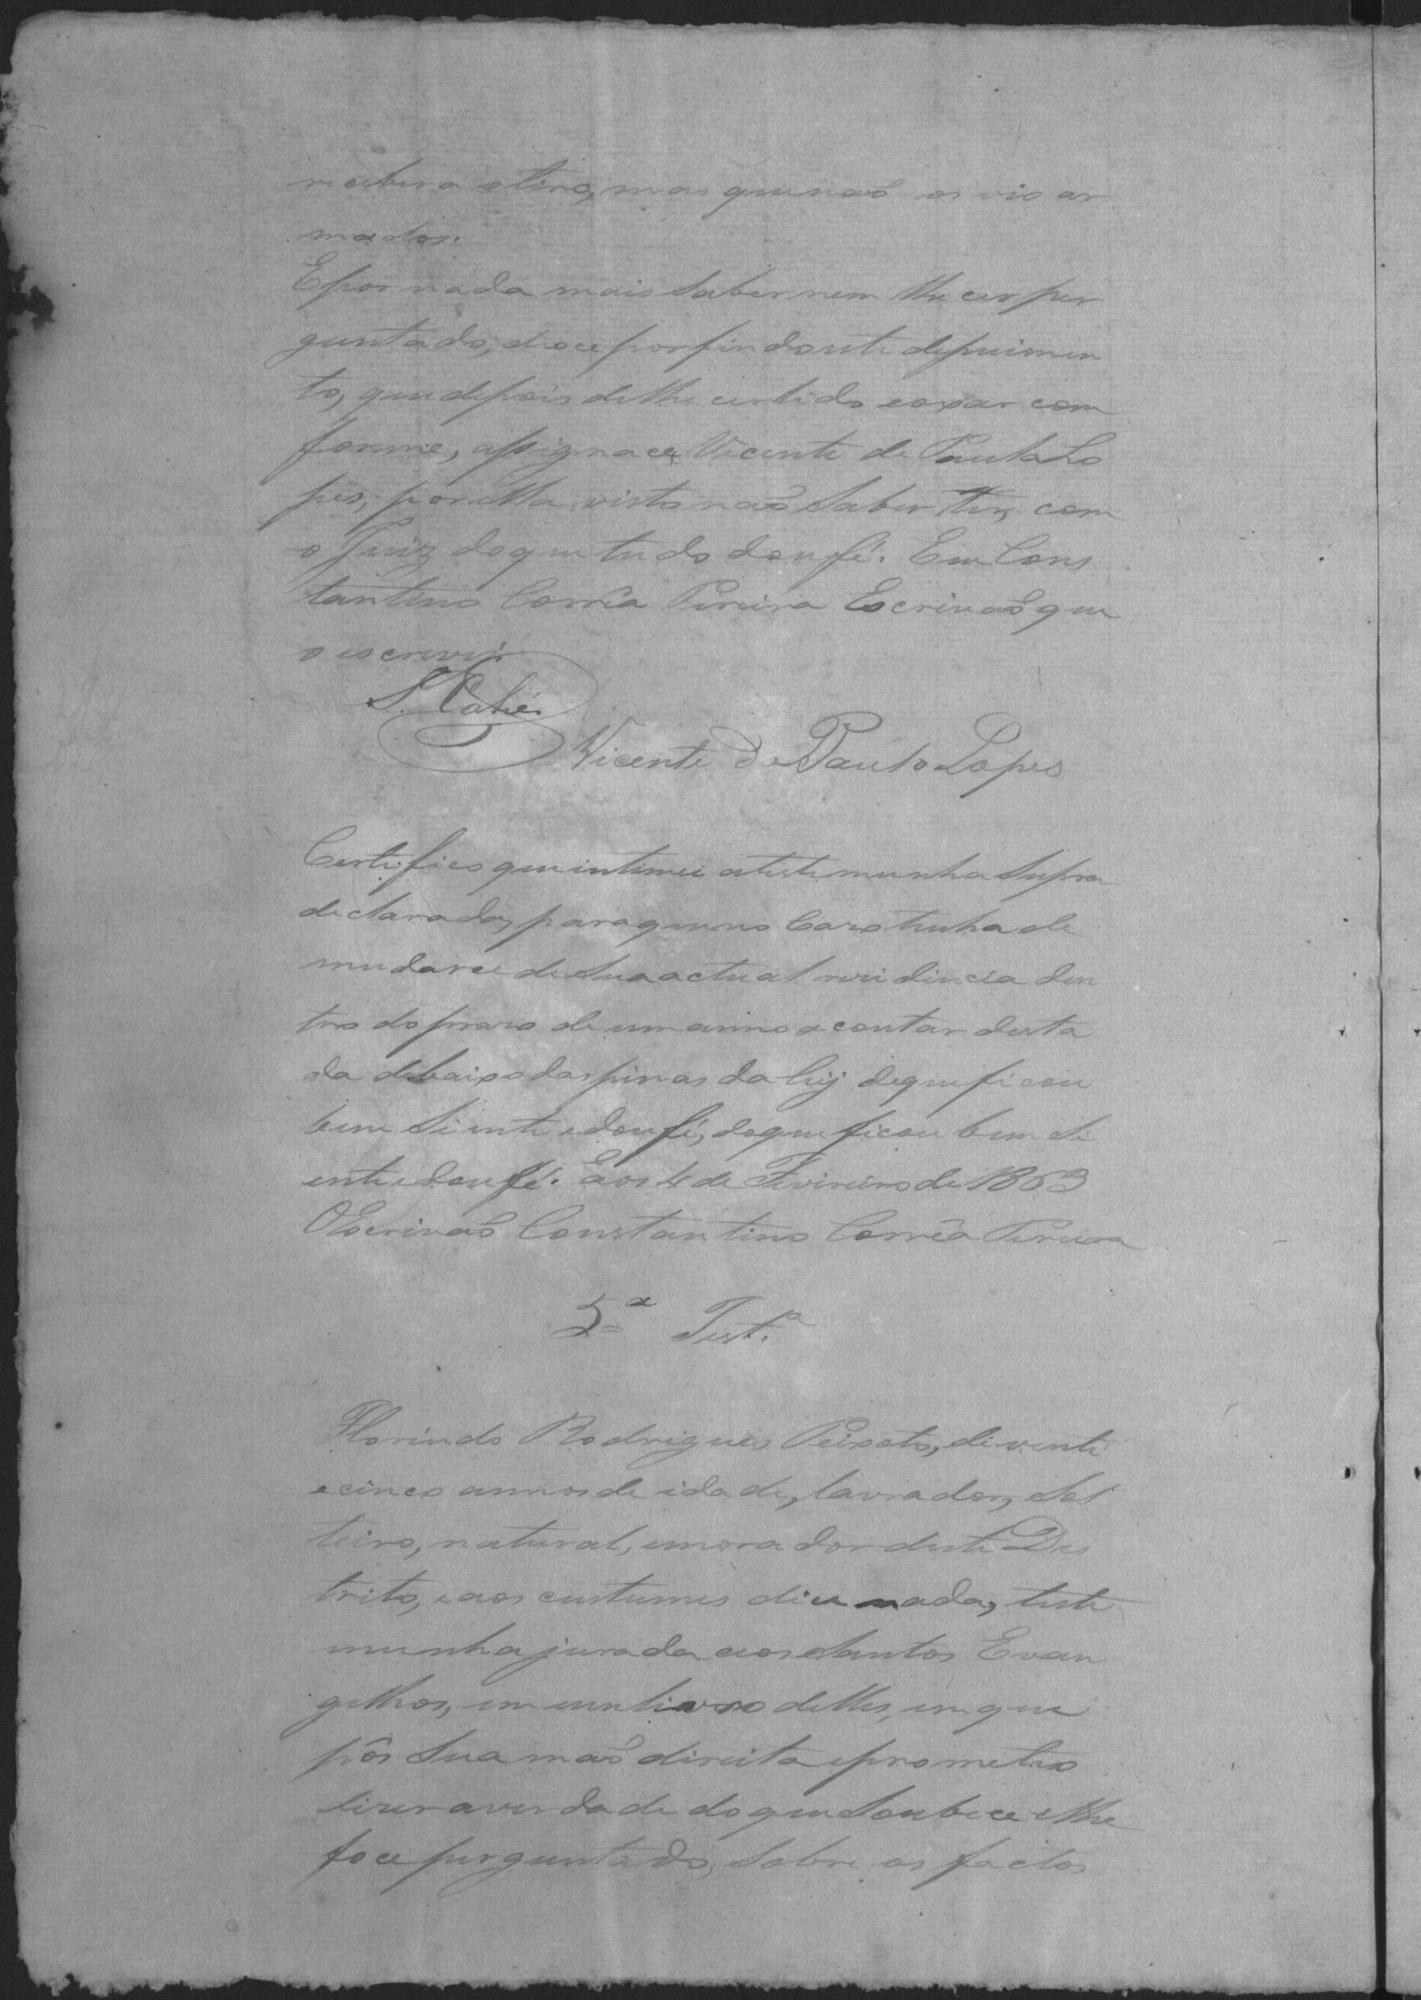 recebera otiro, mas que naõ os vio ar
mados.
E por nada mais saber nem lhe cer per
guntado, dice por findo este depuimen
to, que depois de lhe cer lido e axar com
forme, assignace Vicente de Paula Lo
pes, por ella visto naõ saber ler, com
o Juiz do que tudo dou fé. Eu Cons
tantino Corrêa Pereira Escrivaõ que
o escrevi.
Vicente de Paulo Lopes
Certifico que intimei atestemunha supra
declarada, para que no cazo tenha de
mudarce de sua actual rezidincia den
tro do prazo de um anno a contar desta
da debaixo das penas da Ley de que ficou
bem siente e dou fé, do que ficou bem si
ente e dou fé. Eaos 4 de Fevireiro de 1863
O Escrivaõ Constantino Corrêa Pereira
5ª Testª
Florindo Rodrigues Peixoto, de vente
e cinco annos de idade, lavrador, sol
teiro, natural, emorador deste Des
trito, e aos custumes dice nada, teste
munha jurada aos Santos Evan
gelhos, em um livro delles, em que
pôs sua maõ direita eprometeo
dizer averdade do que soubece e lhe
foce perguntado, sobre os factos